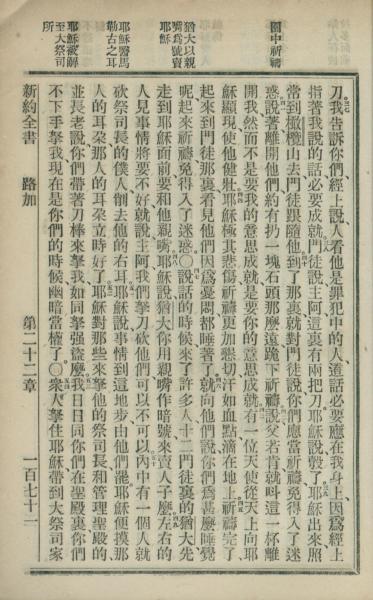 園中祈禱
猶大以親
嘴爲號賣
耶穌
耶穌醫馬
勒古之耳
耶穌被解
至大祭司
所
刀我告訴你們、經上說人看他是罪犯中的人、這話必要應在我身上、因爲經上
指著我說的話必要成就門徒說主阿這裏有兩把刀、耶穌說彀了耶穌出來、照
常到橄欖山去、門徒跟隨他、到了那裏、就對門徒說、你們應當祈禱、免得入了迷
惑說著離開他們、約有扔一塊石頭那麼遠、跪下祈禱說、父若肯、就呌這一杯離
開我、然而不是要我的意思成就、是要你的意思成就、有一位天使從天上向耶
穌顯現、使他健壯、耶穌極其悲傷、祈禱更加懇切、汗如血點、滴在地上、祈禱完了、
起來到門徒那裏、看見他們因爲憂悶都睡著了、就向他們說、你們爲甚麼睡覺
呢、起來祈禱、免得入了迷惑〇說話的時候、來了許多人、十二門徒裏的猶大先
走到耶穌面前、要和他親嘴、耶穌說猶大、你用親嘴作暗號、來賣人子麼、左右的
人見事情將要不好、就說主阿、我們拏刀砍他們可以不可以、內中有一個人、就
砍祭司長的僕人、削去他的右耳、耶穌說、事情到這地步、由他們罷、耶穌便摸那
人的耳朶、那人的耳朶立時好了、耶穌對那些來拏他的祭司長和管理聖殿的、
並長老說、你們帶著刀棒來拏我、如同拏强盜麼、我日日同你們在聖殿裏、你們
不下手拏我、現在是你們的時候、幽暗當權了〇衆人拏住耶穌、帶到大祭司家
新約全書 路加 第二十二章 一百七十二